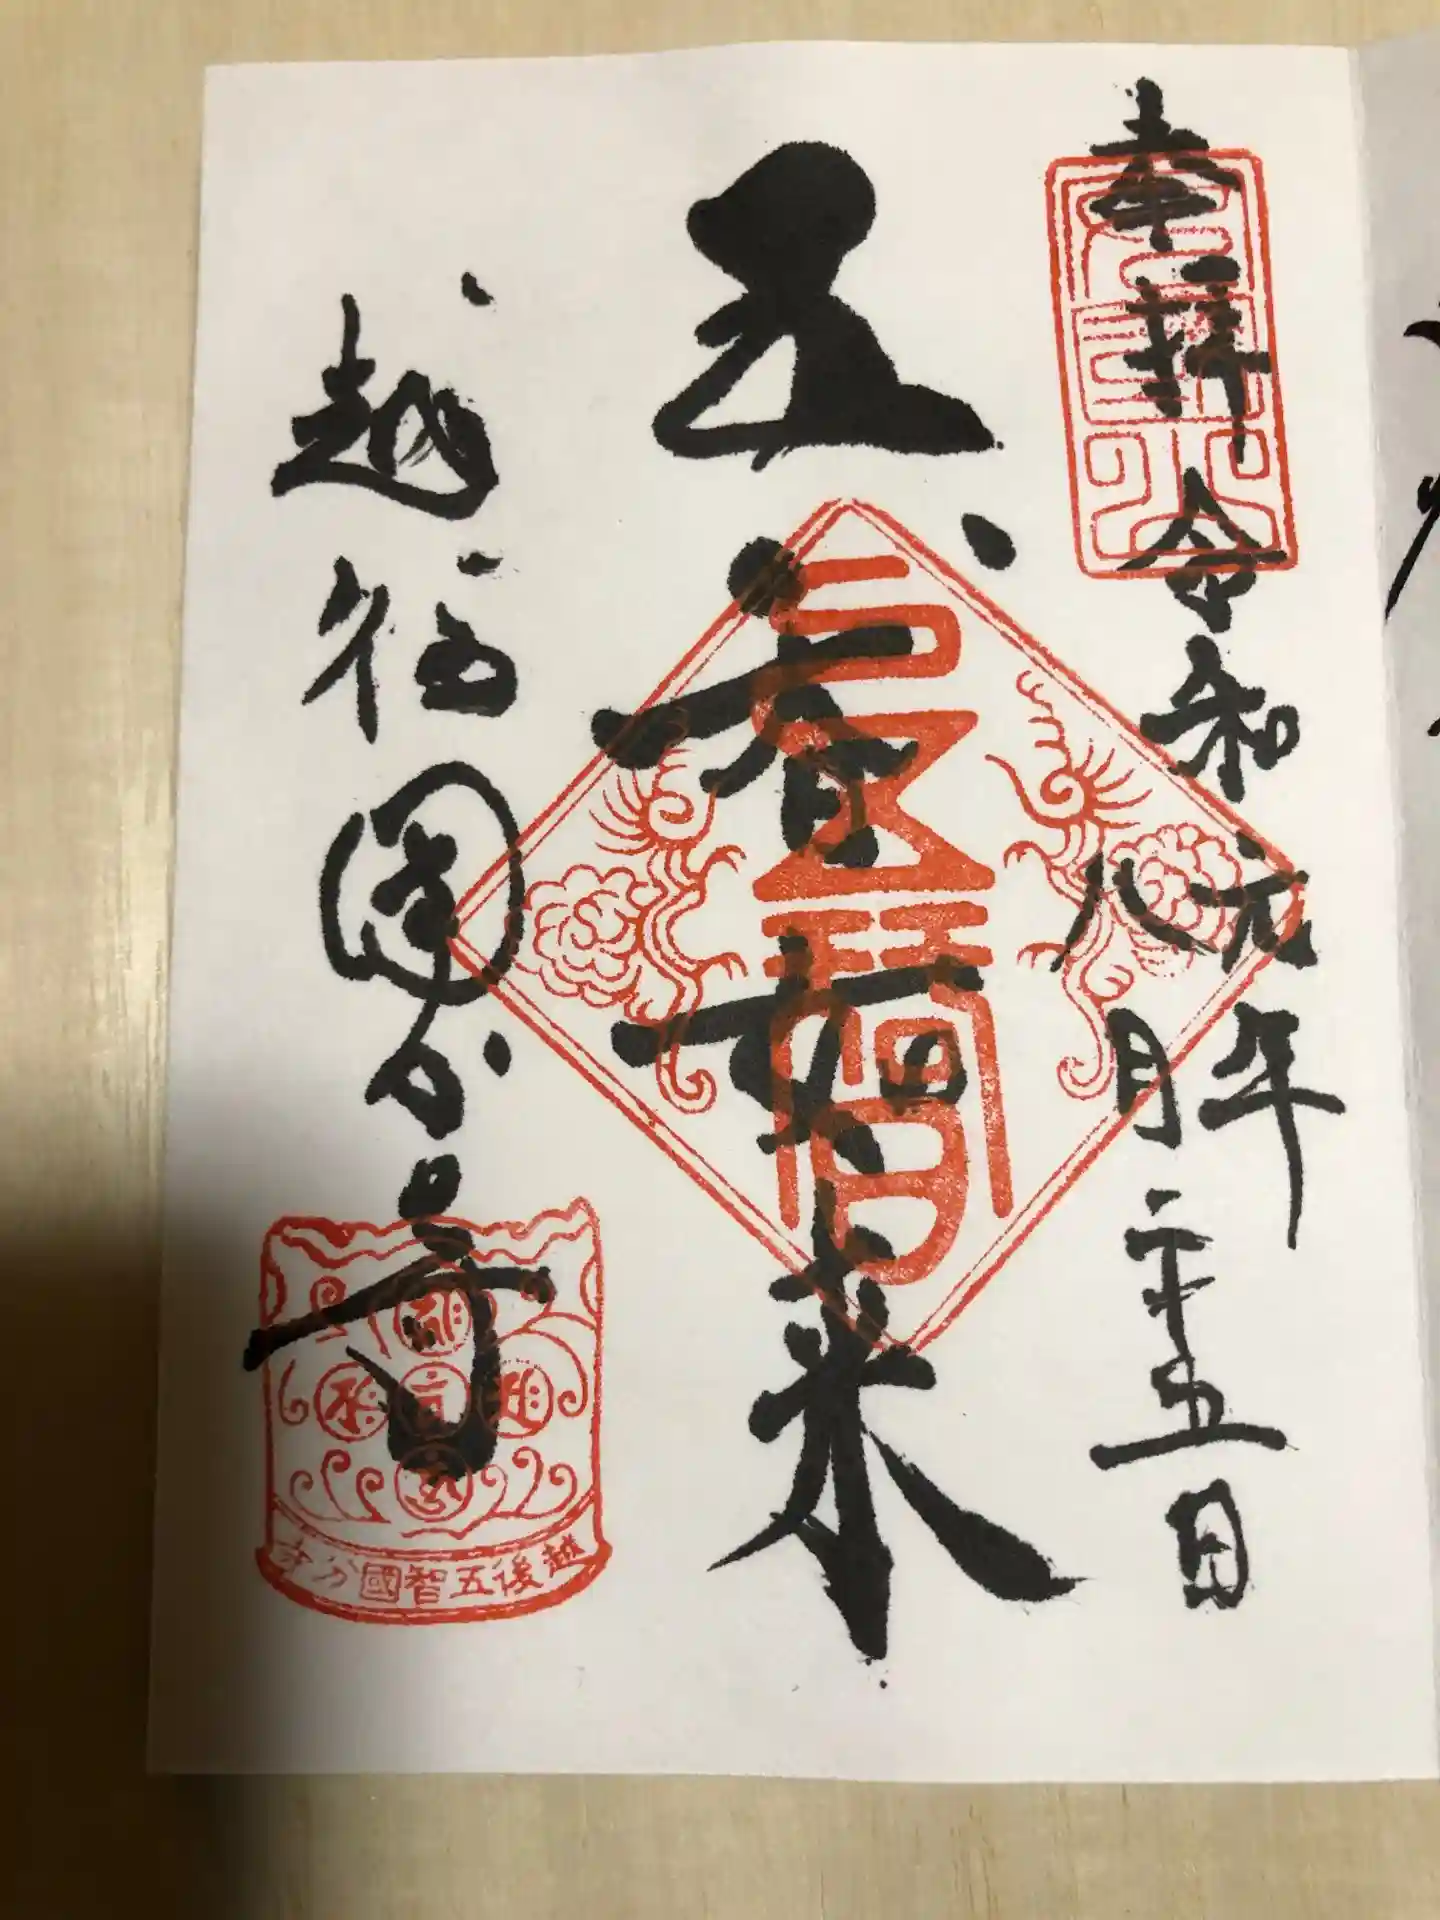 奉拝
令和元年
八月二十五日
五智如来
越後国分寺
越後五智國分寺